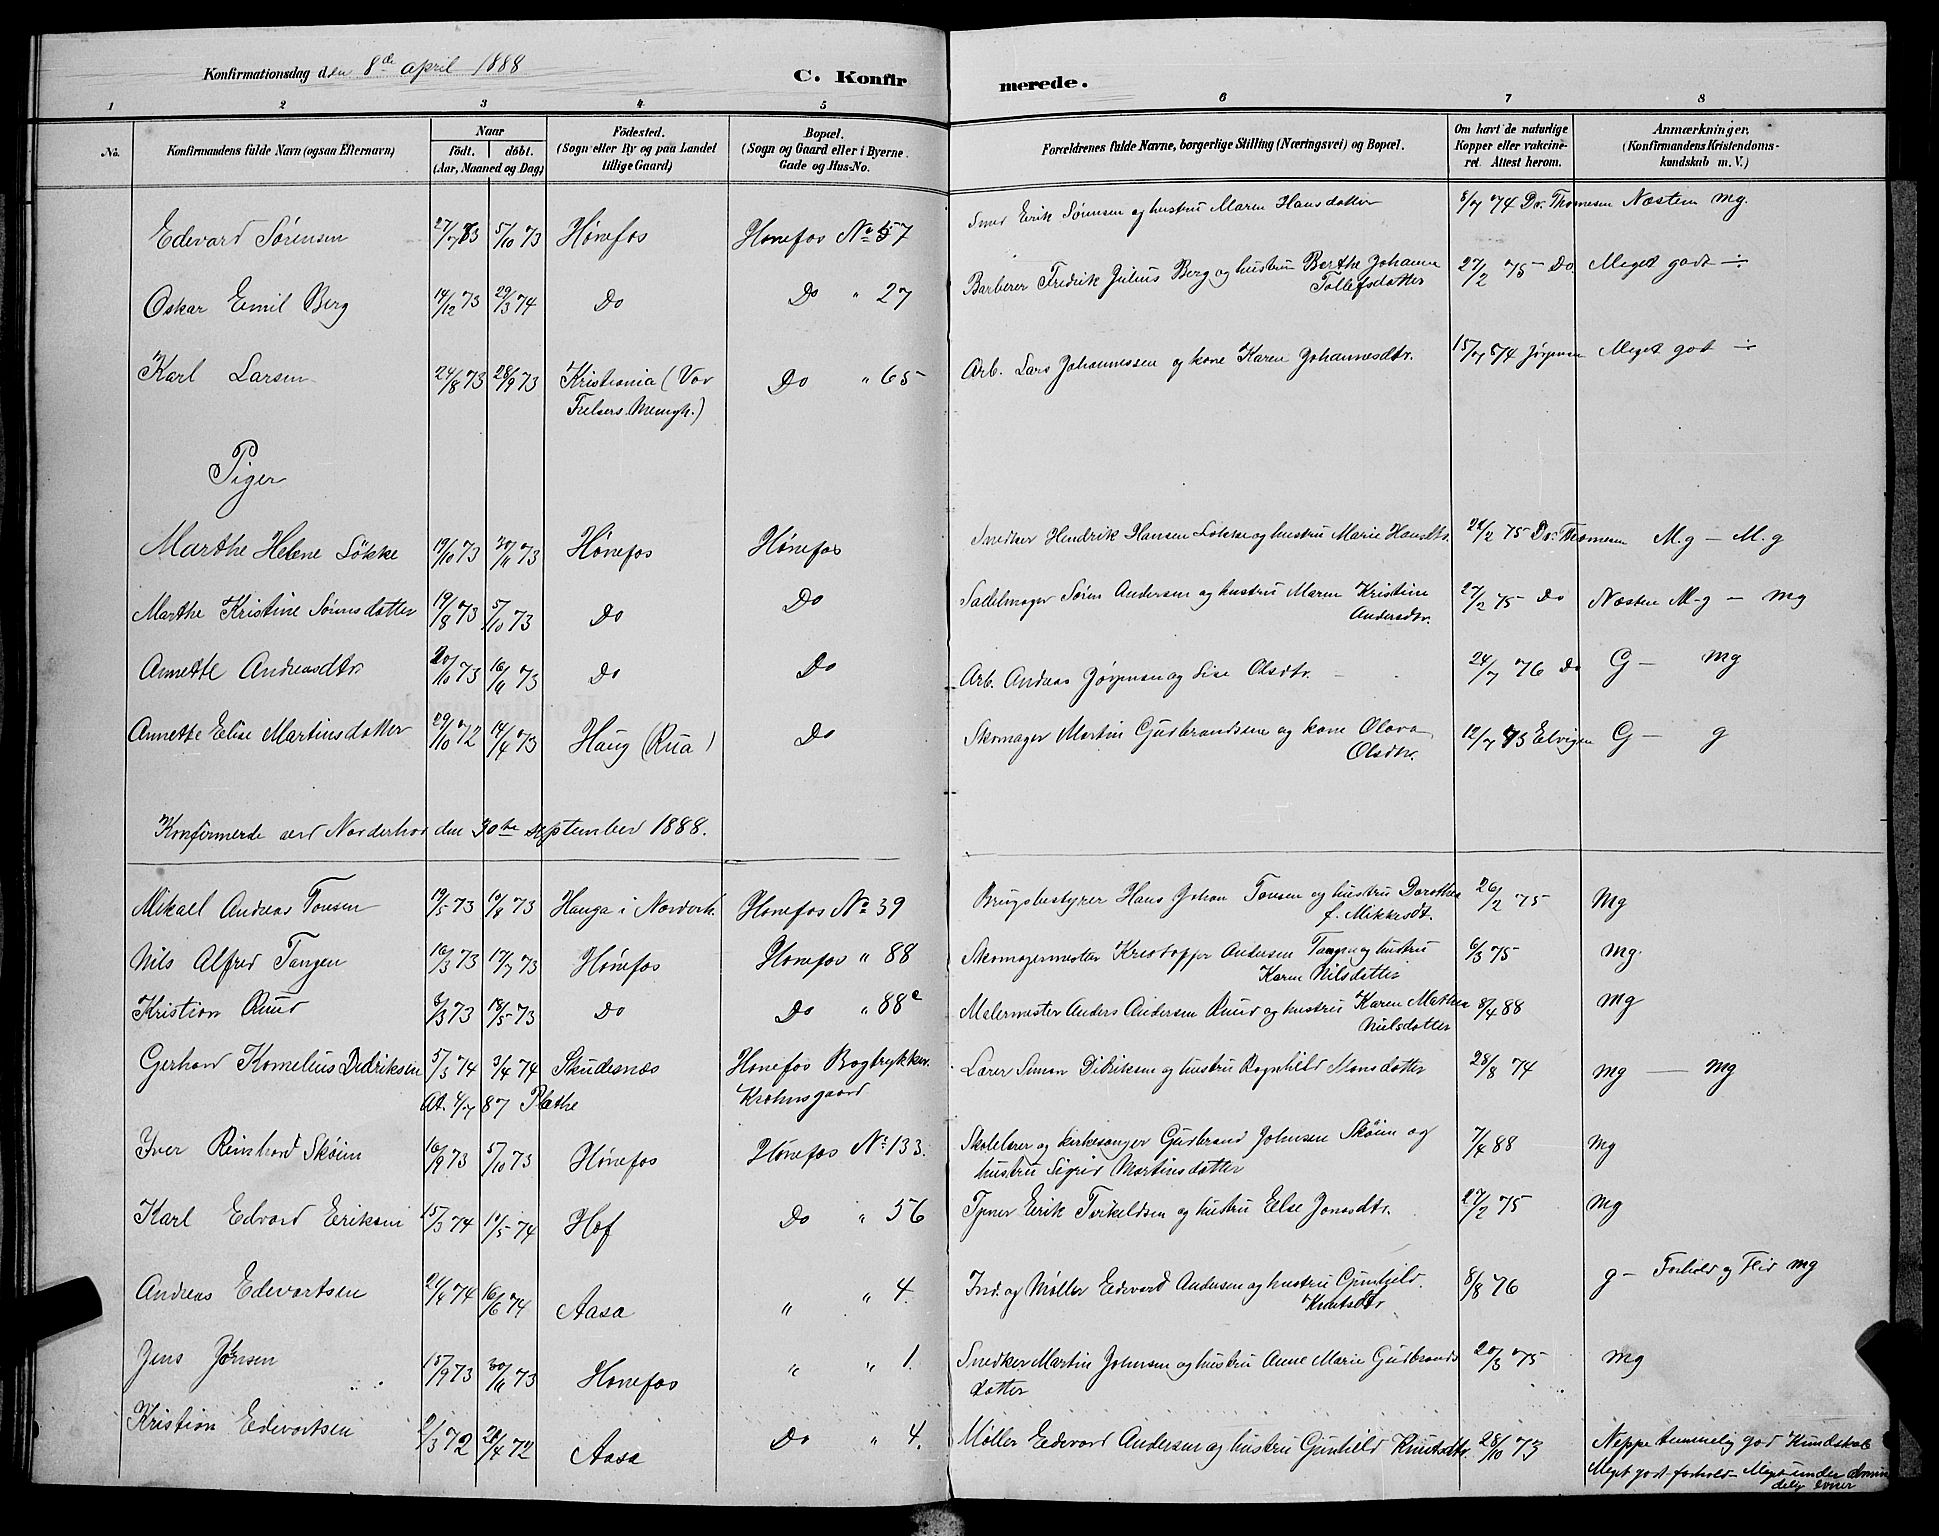 Konfirmationsdag den 8de april 1888
C. Konfirmerede.
1 2 3 4 5 6 7 8
No. Konfirmandens fulde Navn (ogsaa Efternavn) Naar födt. döbt. (Aar, Maaned og Dag) Födested. (Sogn eller By og paa Landet tillige Gaard) Bopæl. (Sogn og Gaard eller i Byerne Gade og Hus-No. Forældrenes fulde Navne, borgerlige Stilling (Næringsvei) og Bopæl. Om havt de naturlige Kopper eller vakcineret. Attest herom. Anmærkninger, (Konfirmandens Kristendomskundskab m. V.)
Edevard Sørensen 27/7 73 5/10 73 Hønefos Hønefos No 57 Smed Erik Sørensen og hustru Maren Hansdatter 8/7 74 Dr. Thomesen Næsten mg.
Oskar Emil Berg 14/12 73 29/3 74 Do Do " 27 Barberer Fredrik Julius Berg og hustru Berthe Johanne Tollefsdatter 27/2 75 - Do Meget godt -:-
Karl Larsen 24/8 73 28/9 73 Kristiania (Vor Frelsers Menigh.) Do " 65 Arb. Lars Johannessen og kone Karen Johannesdtr. 15/7 74 Jørgensen Meget godt -:-
Piger
Marthe Helene Løkke 19/10 73 30/11 73 Hønefos Hønefos Snedker Hendrik Hansen Løkke og hustru Marie Hansdtr. 28/2 75 Dr. Thomesen M.g - M.g
Marthe Kristine Sørensdatter 19/8 73 5/10 73 Do Do Sadelmager Søren Andersen og hustru Maren Kristine Andersdtr. 27/2 75 - Do Næsten M.g - mg
Annette Andreasdtr. 20/10 73 16/11 73 Do Do Arb. Andreas Jørgensen og Lise Olsdtr. 24/7 76 Do G - mg
Annette Elise Martinsdatter 29/10 72 14/4 73 Haug (Rua) Do Skomager Martin Gudbrandsen og kone Olava Olsdtr. 12/7 73 Elvigen G - g
Konfirmerde ved Norderhov den 30te september 1888.
Mikael Andreas Tonsen 19/5 73 10/8 73 Hauga i Norderh. Hønefos No 39 Brugsbestyrer Hans Johan Tonsen og hustru Dorothea f. Mikkelsdt. 26/2 75 Mg
Nils Alfred Tangen 16/3 73 17/7 73 Hønefos Hønefos " 88 Skomagermester Kristoffer Andersen Tangen og hustru Karen Nilsdatter 6/3 75 mg.
Kristian Ruud 8/3 73 18/5 73 Do Do " 88c Malermester Anders Andersen Ruud og hustru Karen Mathea Nielsdatter 8/4 88 mg
Gerhard Kornelius Didriksen 5/3 74 3/4 74 Skudesnæs Hønefos Bogtrykker Krohnsgaard Lærer Simon Didriksen og hustru Ragnhild Monsdatter 28/8 74 mg - mg
At. 4/7 87 Pløthe
Iver Reinhard Skøien 16/9 73 5/10 73 Hønefos Hønefos No 133. Skolelærer og kirkesanger Gudbrand Johnsen Skøien og hustru Sigrid Martinsdatter 7/4 88 mg
Karl Edvard Eriksen 15/3 74 10/5 74 Hof Do " 56 Tjener Erik Torkeldsen og hustru Else Jonasdtr. 27/2 75 mg
Andreas Edevartsen 24/4 74 16/6 74 Aasa " " 4. Ind. og Møller Edevard Andersen og hustru Gunhild Knutsdtr 8/8 76 g - Forhold og Flid mg
Jens Johnsen 15/9 73 30/11 73 Hønefos " " 1. Snedker Martin Johnsen og hustru Anne Marie Gudbrandsdatter 20/3 75 mg
Kristian Edevartsen 2/3 72 28/4 72 Aasa Do " 4. Møller Edevard Andersen og hustru Gunhild Knutsdtr. 28/10 73 Neppe temmelig god Kundskab Meget godt forhold - Meget under almindelig evner